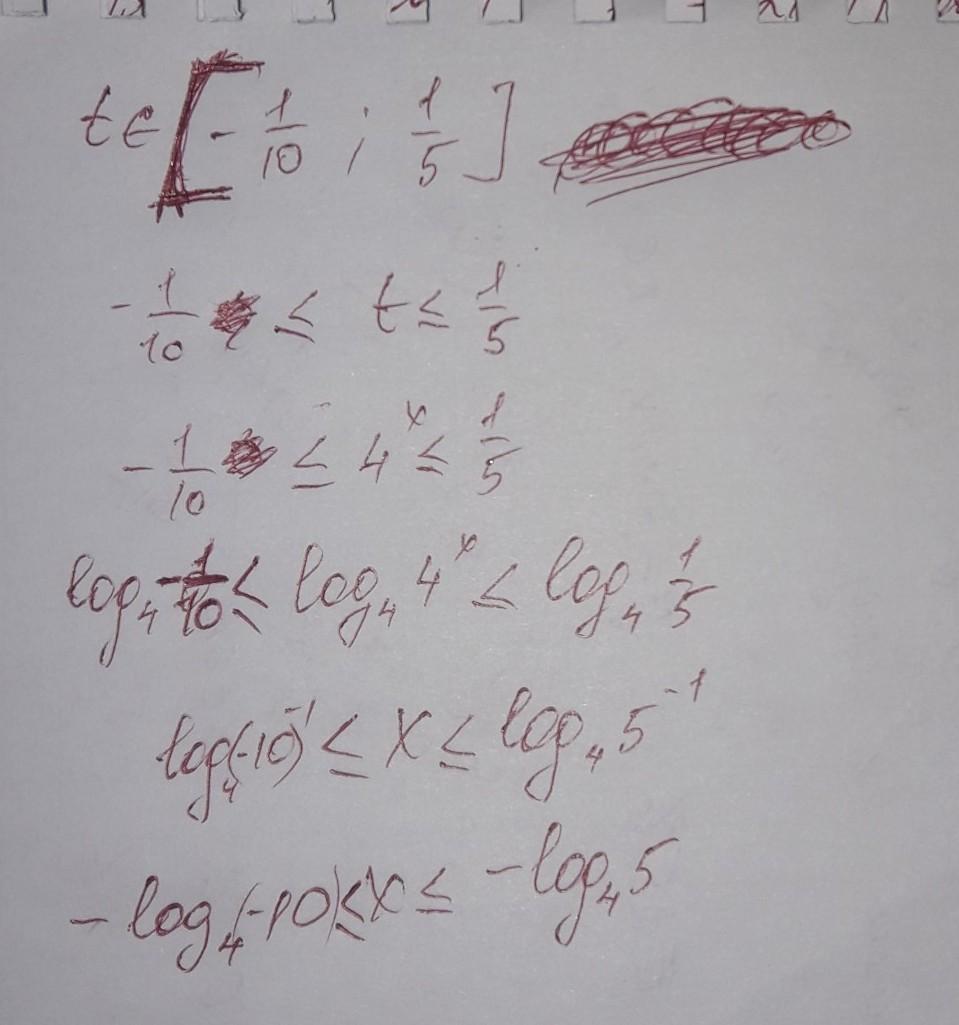 t∈[-1/10 ; 1/5]
-1/10 ≤ t ≤ 1/5
-1/10 ≤ 4^x ≤ 1/5
log₄ -1/10 ≤ log₄ 4^x ≤ log₄ 1/5
log₄(-10)^-1 ≤ x ≤ log₄ 5^-1
-log₄(-10) ≤ x ≤ -log₄ 5